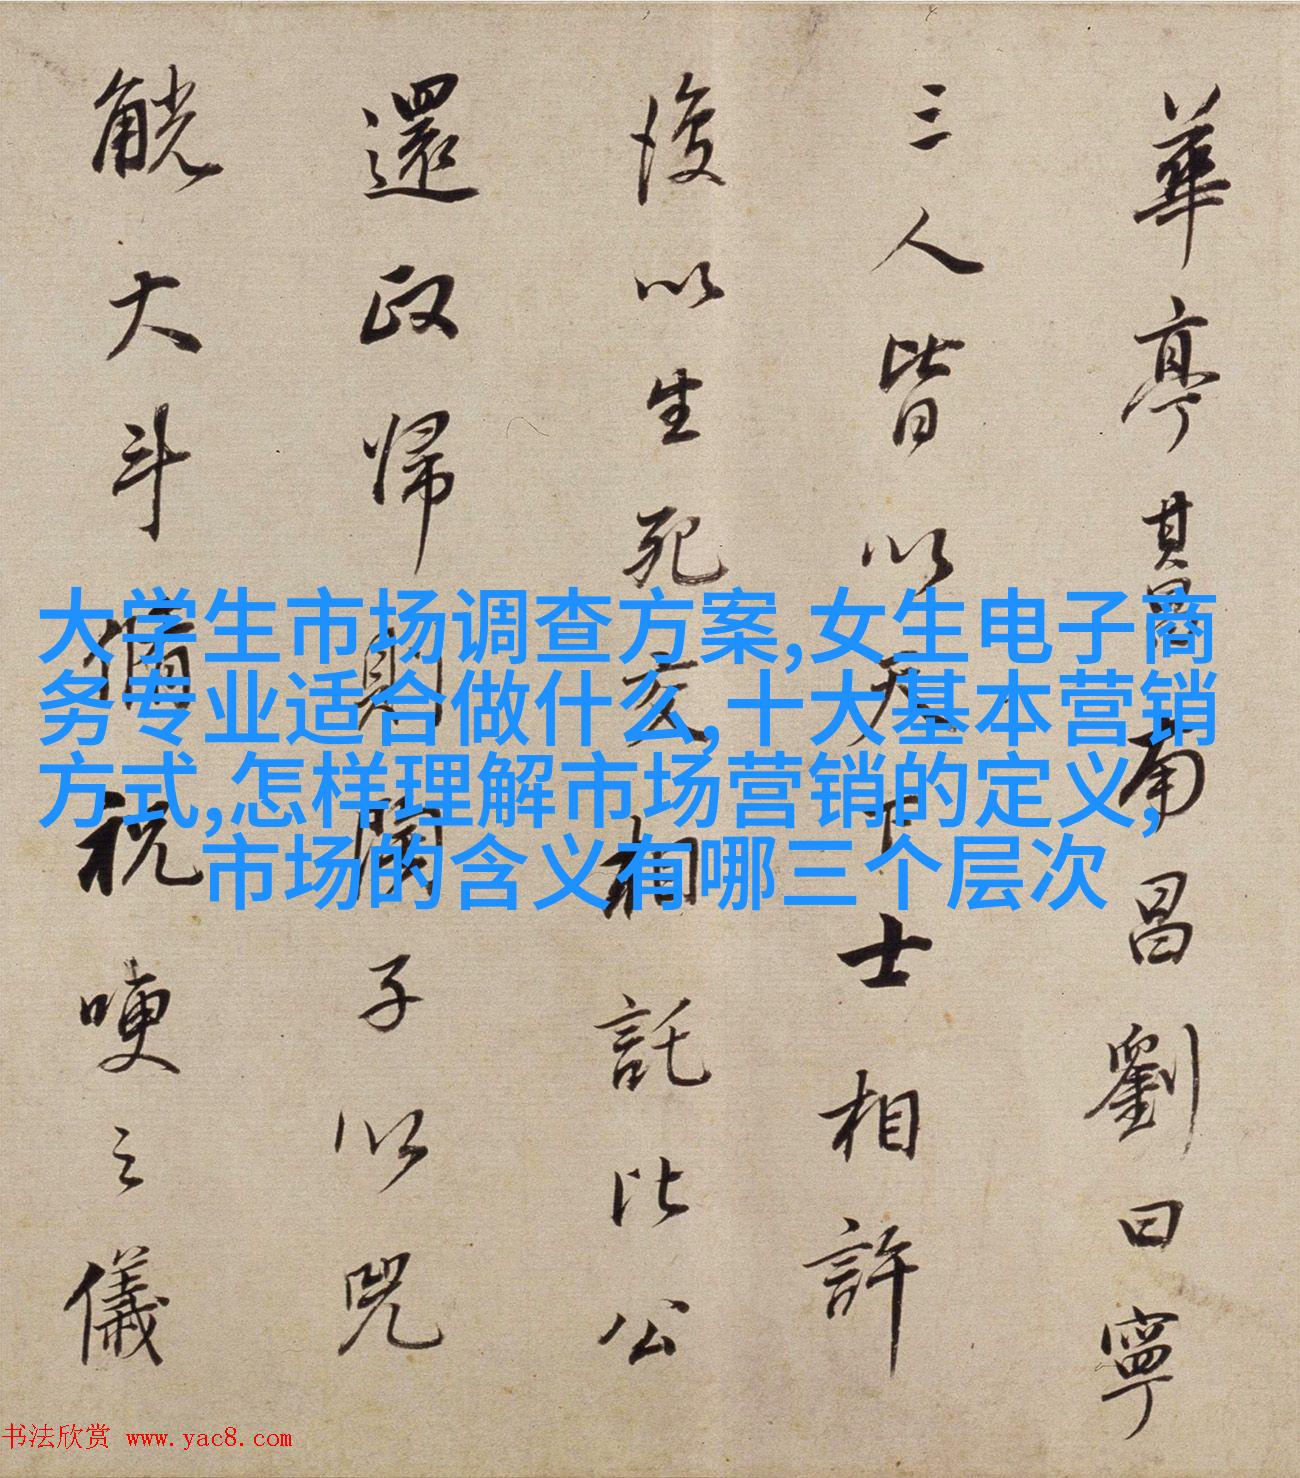 華亭其昌南昌劉曰寧
三人皆以天下士相許
後以生死交相託比公
還政歸則子以兕
觥大斗備祝哽之儀
大学生市场调查方案,女生电子商
务专业适合做什么,十大基本营销
方式,怎样理解市场营销的定义,
市场的含义有哪三个层次
书法欣赏 www.yac8.com